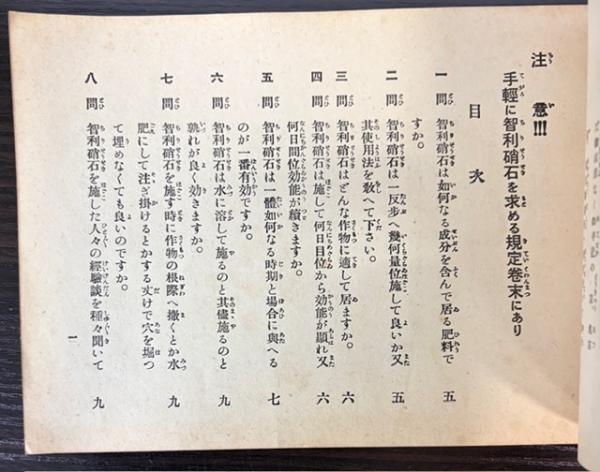 注意!!!
手輕に智利硝石を求める規定卷末にあり
目次
一 問 智利硝石は如何なる成分を含んで居る肥料で 五
すか。
二 問 智利硝石は一反步へ幾何量位施して良いか又 五
其使用法を敎へて下さい。
三 問 智利硝石はどんな作物に適して居ますか。 六
四 問 智利硝石は施して何日目位から効能が顯れ又 六
何日間位効能が續きますか。
五 問 智利硝石は一體如何なる時期と場合に與へる 七
のが一番有効ですか。
六 問 智利硝石は水に溶して施るのと其儘施るのと 九
孰れが良く効きますか。
七 問 智利硝石を施す時に作物の根際へ撒くとか水 九
肥にして注ぎ掛けるとかする丈けで穴を堀つ
て埋めなくても良いのですか。
八 問 智利硝石を施した人々の經驗談を種々聞いて 九
一